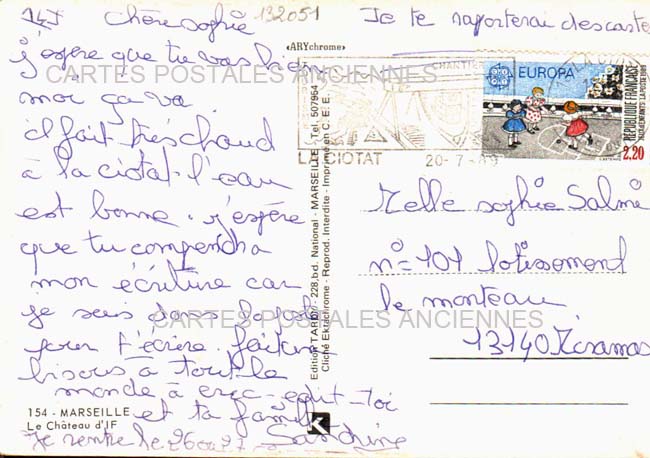 132051
Chère sophie
Je te raporterai des carte
j'espère que tu vas bien
moi ça va
il fait très chaud
à la ciotat. l'eau
est bonne. j'espère
que tu compendra
mon écriture car
je suis dans
pour t'écrire. fait un
bisous à tout le
monde à eric-edit-toi
et ta famille
Je rentre le 26 ou 27
Sandrine
«ARYchrome»
CARTES POSTALES ANCIENNES
CARTES POSTALES ANCIENNES
Edition TARDY - 228, bd. National - MARSEILLE - Tel. 507964
Cliché Ektachrome - Reprod. Interdite - Imprimé en C.E.E.
154 - MARSEILLE
Le Château d'IF
K
LA CIOTAT
20-7-89
EUROPA
REPUBLIQUE FRANÇAISE
2,20
Melle sophie Salmi
n=101 lotissement
le monteau
13140 Miramas